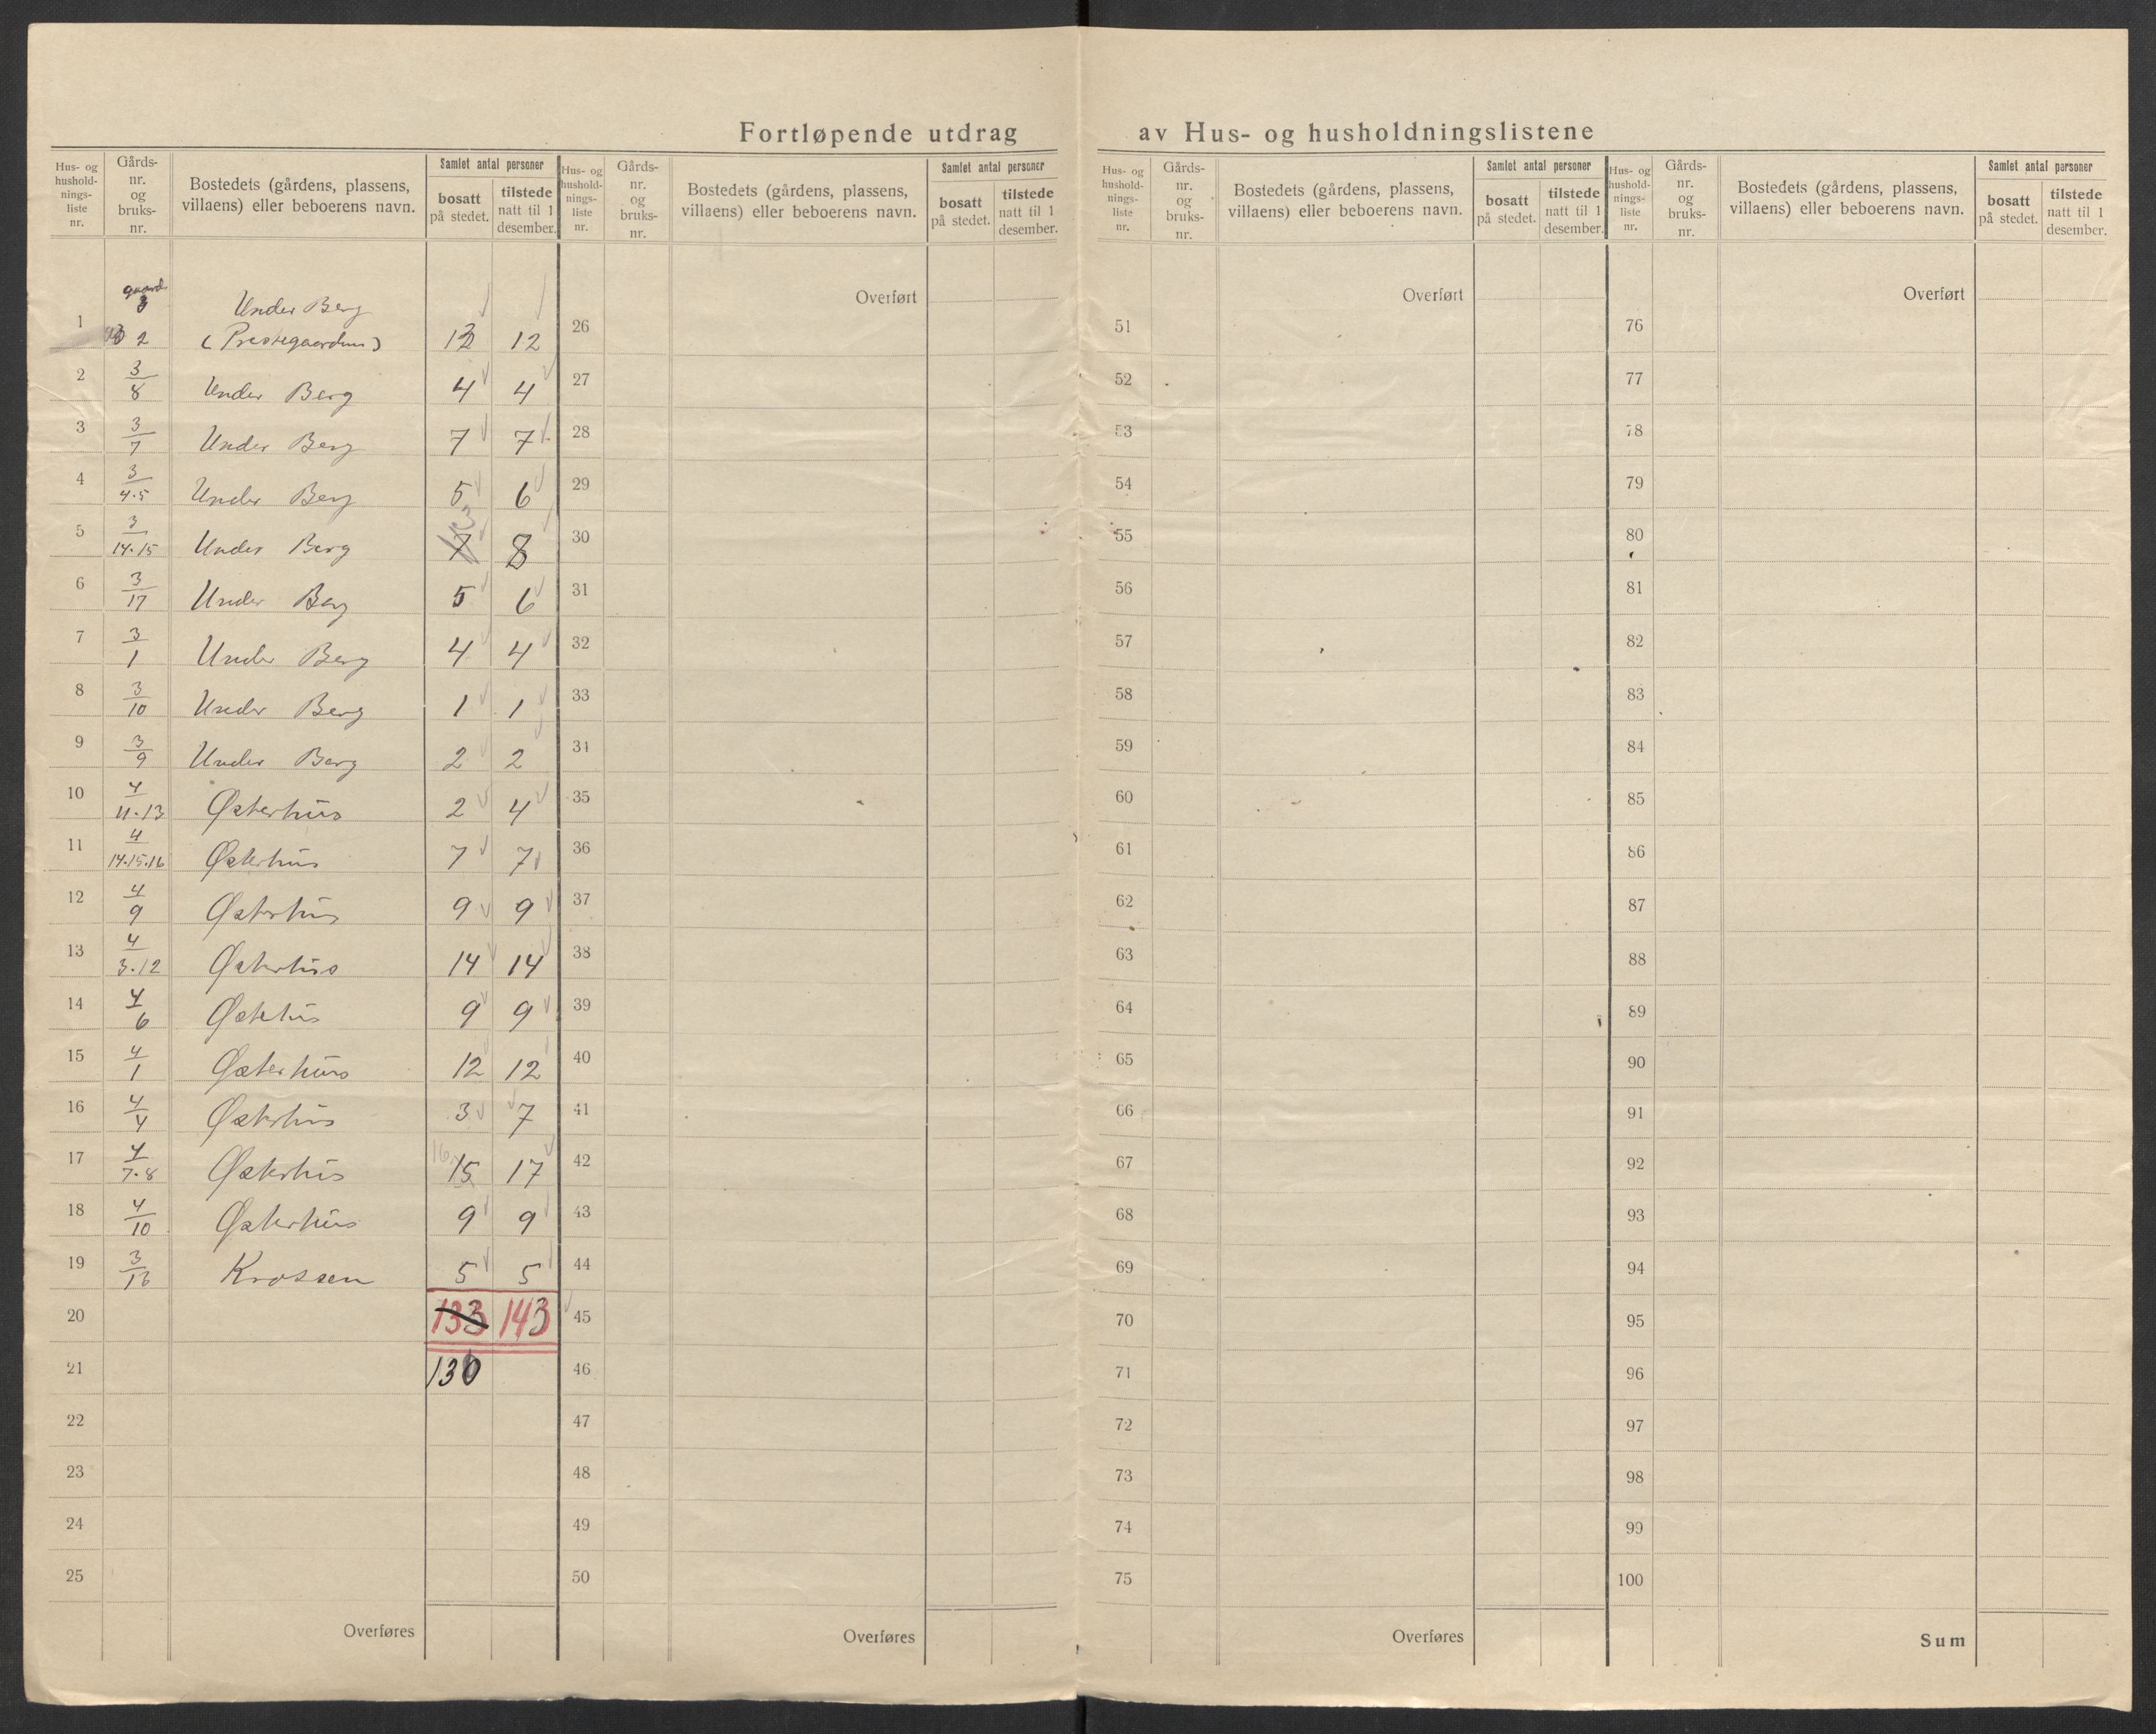 Fortløpende utdrag av Hus- og husholdningslistene
Hus- og hushold-nings-liste nr. | Gårds-nr. og bruks-nr. | Bostedets (gårdens, plassens, villaens) eller beboerens navn. | Samlet antal personer: bosatt på stedet. | tilstede natt til 1 desember.
Hus- og hushold-nings-liste nr. | Gårds-nr. og bruks-nr. | Bostedets (gårdens, plassens, villaens) eller beboerens navn. | Samlet antal personer: bosatt på stedet. | tilstede natt til 1 desember.
Hus- og hushold-nings-liste nr. | Gårds-nr. og bruks-nr. | Bostedets (gårdens, plassens, villaens) eller beboerens navn. | Samlet antal personer: bosatt på stedet. | tilstede natt til 1 desember.
Hus- og hushold-nings-liste nr. | Gårds-nr. og bruks-nr. | Bostedets (gårdens, plassens, villaens) eller beboerens navn. | Samlet antal personer: bosatt på stedet. | tilstede natt til 1 desember.
gaard 3 Under Berg
1 2 (Prestegaarden) 12
2 3/8 Under Berg 4 4
3 3/7 Under Berg 7 7
4 3/4.5 Under Berg 5 6
5 3/14.15 Under Berg 7 8
6 3/17 Under Berg 5 6
7 3/1 Under Berg 4 4
8 3/10 Under Berg 1 1
9 3/9 Under Berg 2 2
10 4/11.13 Østerhus 2 4
11 4/14.15.16 Østerhus 7 7
12 4/9 Østerhus 9 9
13 4/3.12 Østerhus 14 14
14 4/6 Østerhus 9 9
15 4/1 Østerhus 12 12
16 4/4 Østerhus 3 7
17 4/7.8 Østerhus 16 15 17
18 4/10 Østerhus 9 9
19 3/13 Krossen 5 5
20 133 143
21 130
22
23
24
25
Overføres
Overført
26
27
28
29
30
31
32
33
34
35
36
37
38
39
40
41
42
43
44
45
46
47
48
49
50
Overføres
Overført
51
52
53
54
55
56
57
58
59
60
61
62
63
64
65
66
67
68
69
70
71
72
73
74
75
Overføres
Overført
76
77
78
79
80
81
82
83
84
85
86
87
88
89
90
91
92
93
94
95
96
97
98
99
100
Sum